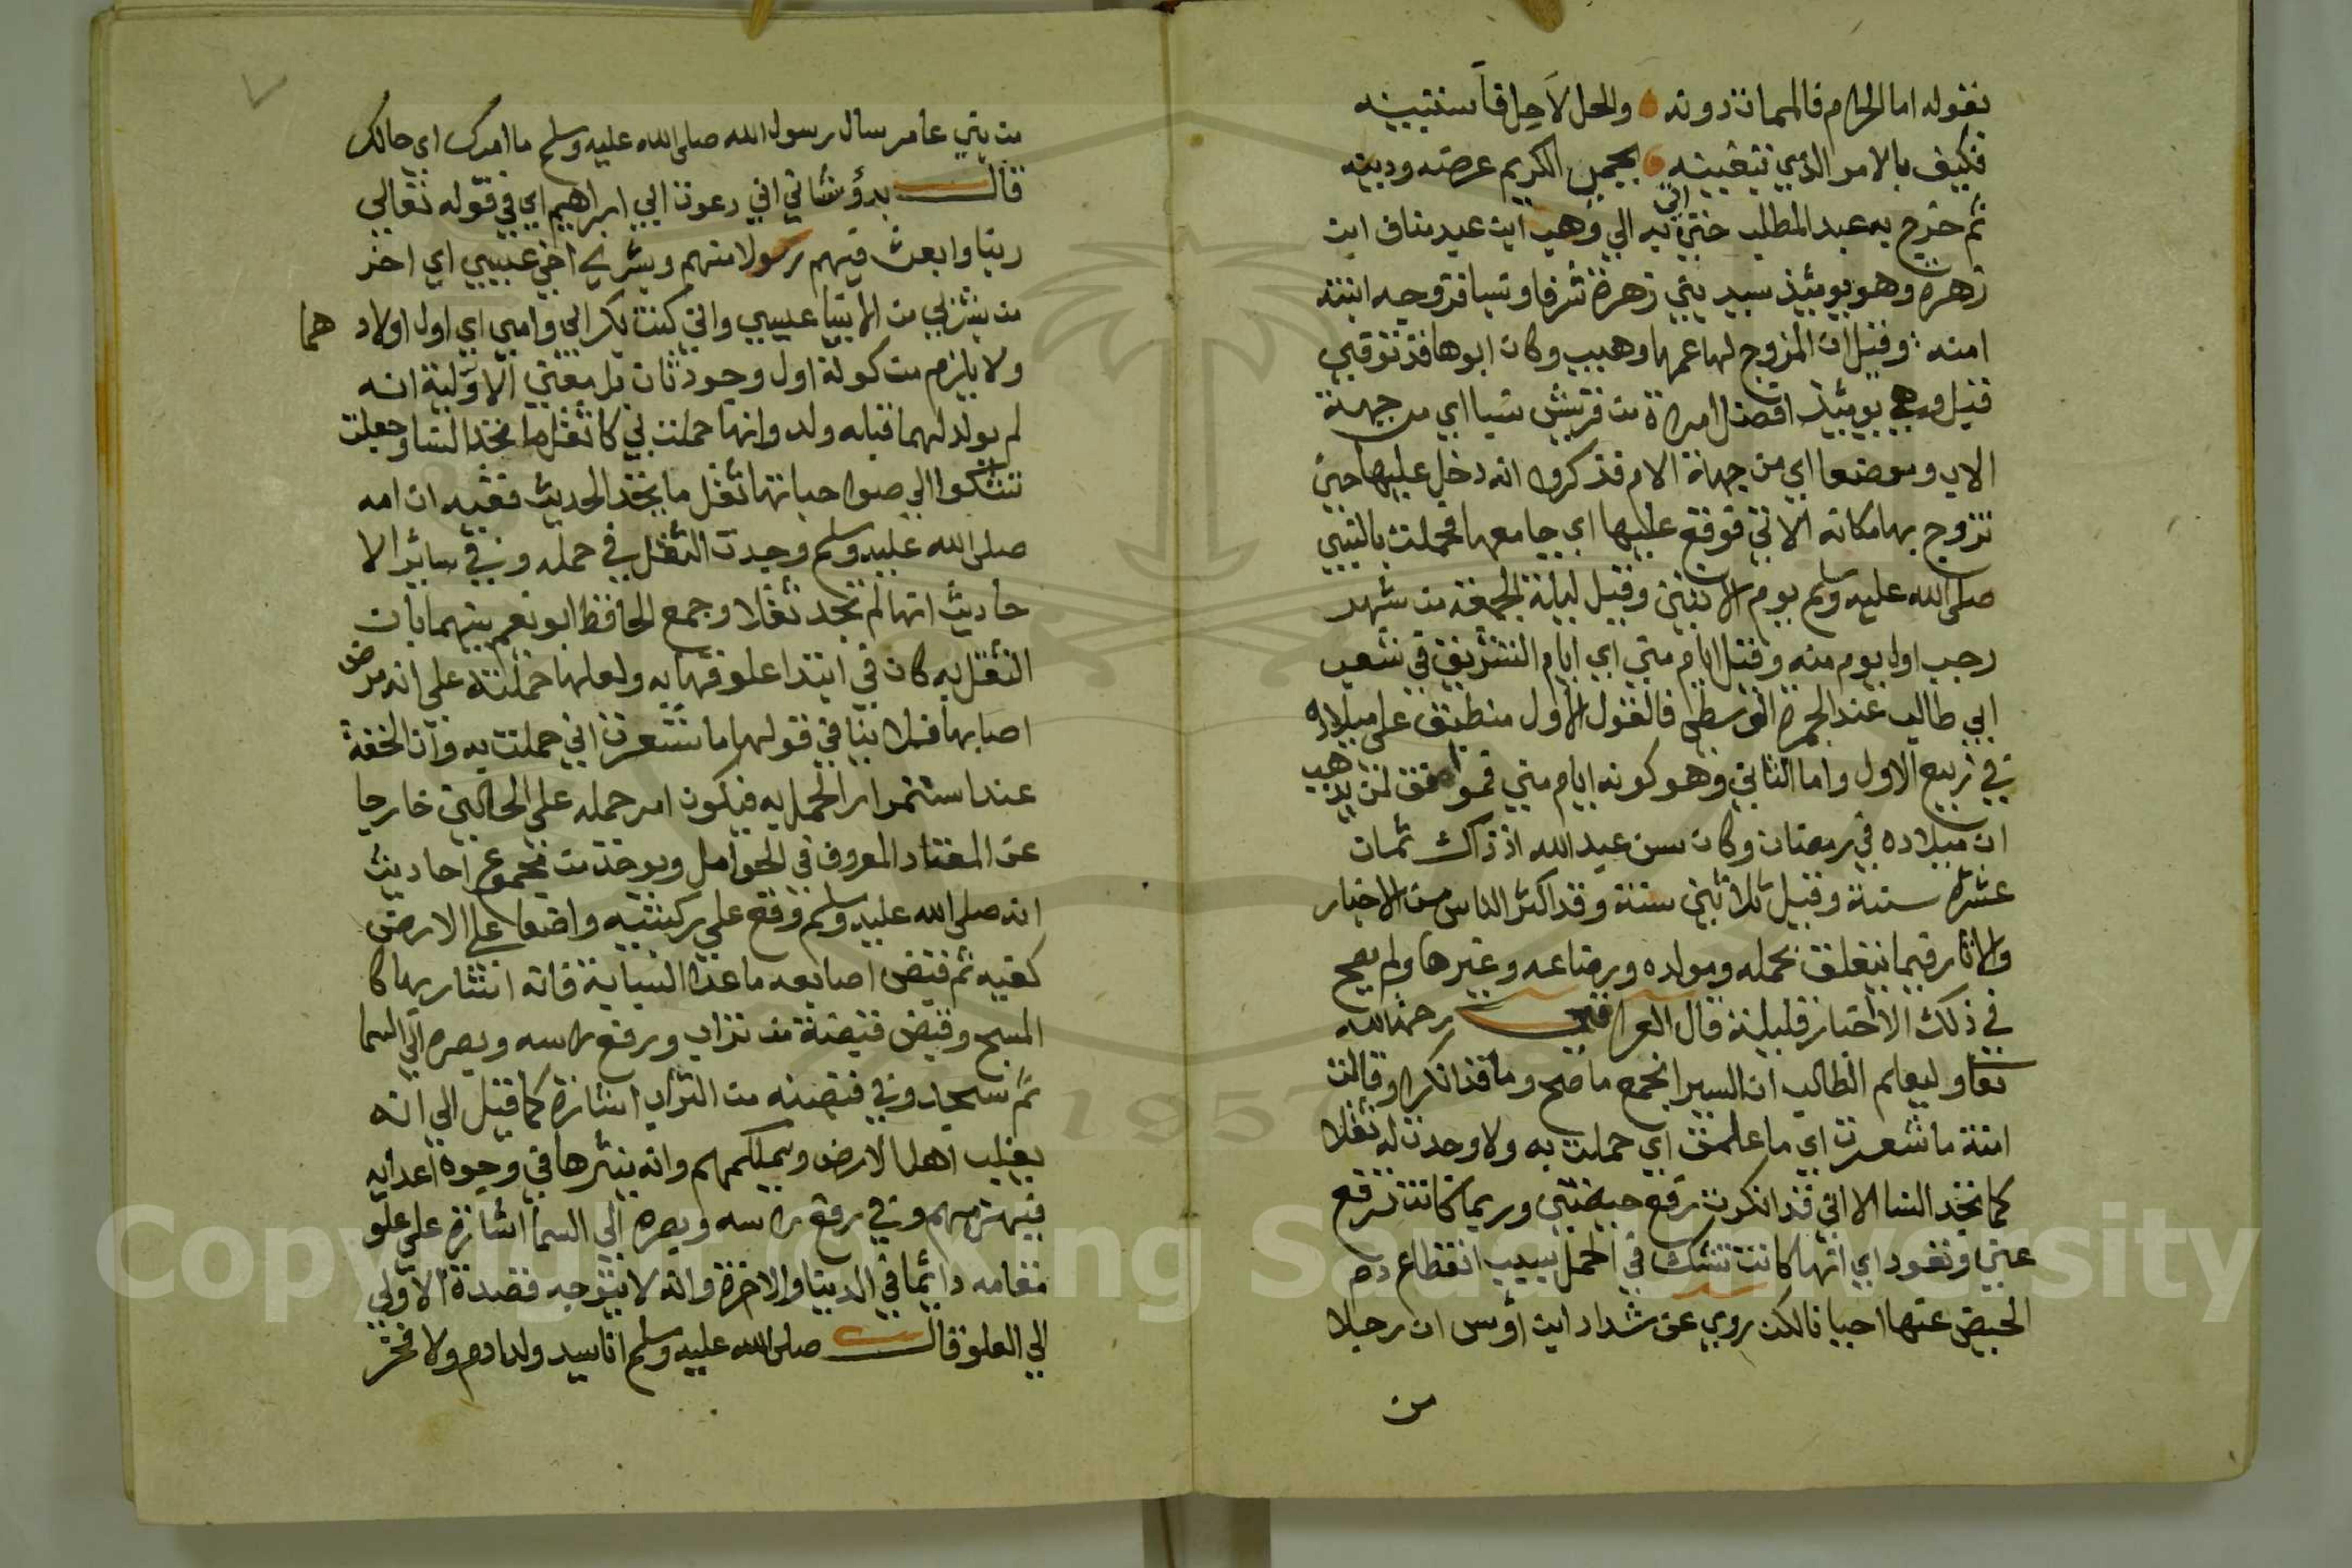 بقوله اما الحرام فالممات دونه والحل لا حل فاستبينه
فكيف بالامر الذي تبغينه يحمي الكريم عرضه ودينه
ثم خرج به عبد المطلب حتى اتى به الي وهب ابن عبد مناف ابن
زهرة وهو يوميئذ سيد بني زهرة شرفا ونسبا فزوجه ابنته
امنه وقيل ان المزوج لها عمها وهيب وكان ابوها قد توفي
قبل وهي يوميئذ افضل امراة من قريش نسبا اي من جهة
الاب وموضعا اي من جهة الام فذكروا انه دخل عليها حين
تزوج بها مكانه الاتي فوقع عليها اي جامعها فحملت بالنبي
صلى الله عليه وسلم يوم الاثنين وقيل ليلة الجمعة من شهر
رجب اول يوم منه وقيل ايام مني اي ايام التشريق في شعب
ابي طالب عند الجمرة الوسطى فالقول الاول منطبق على ميلاده
في ربيع الاول واما الثاني وهو كونه ايام مني فموافق لمن يذهب
ان ميلاده في رمضان وكان سن عبد الله اذ ذاك ثمان
عشرة سنة وقيل ثلاثين سنة وقد اكثر الناس من الاخبار
والاثار فيما يتعلق بحمله ومولده ورضاعه وغيرها ولم يصح
في ذلك الا اخبار قليلة قال العراقي رحمه الله
تعا وليعلم الطالب ان السيرا تجمع ما صح وما قد انكرا وقالت
امنة ما شعرت اي ما علمت اي حملت به ولا وجدت له ثقلا
كما تجد النسا الا اني قد انكرت رفع حيضتي وربما كانت ترفع
عني وتعود اي انها كانت تشك في الحمل بسبب انقطاع دم
الحيض عنها احيانا لكن روي عن شداد ابن اوس ان رجلا
من
من بني عامر سال رسول الله صلى الله عليه وسلم ما امرك اي حالك
قال بدؤ شاني اني دعوة ابي ابراهيم اي في قوله تعالي
ربنا وابعث فيهم رسولا منهم وبشري اخي عيسي اي اخر
من بشر بي من الانبيا عيسي واني كنت بكر ابي وامي اي اول اولادهما
ولا يلزم من كونه اول وجود ثان بل معني الاولية انه
لم يولد لهما قبله ولد وانها حملت بي كاثقل ما تجد النسا وجعلت
تشكوا الي صواحباتها ثقل ما تجد الحديث ففيه ان امه
صلى الله عليه وسلم وجدت الثقل في حمله وفي سائر الا
حاديث انها لم تجد ثقلا وجمع الحافظ ابو نعيم بينهما بان
الثقل به كان في ابتدا علوقها به ولعلها حملته على انه مرض
اصابها فلا ينافي قولها ما شعرت اني حملت به وان الخفة
عند استمرار الحمل به فيكون امر حمله على الحالين خارجا
عن المعتاد المعروف في الحوامل ويوخذ من مجموع احاديث
انه صلى الله عليه وسلم وقع علي ركبتيه واضعا على الارض
كفيه ثم قبض اصابعه ماعدا السبابة فانه اشار بها كا
لمسبح وقبض قبضة من تراب ورفع راسه وبصره الي السما
ثم سجد وفي قبضه من التراب اشارة كما قيل الي انه
يغلب اهل الارض ويملكهم وانه ينثرها في وجوه اعدايه
فيهزمهم وفي رفع راسه وبصره الي السما اشارة على علو
مقامه دايما في الدنيا والاخرة وانه لا يتوجه قصده الا ولي
الي العلو قال صلى الله عليه وسلم انا سيد ولد ادم ولا فخر
Copyright © King Saud University
1957